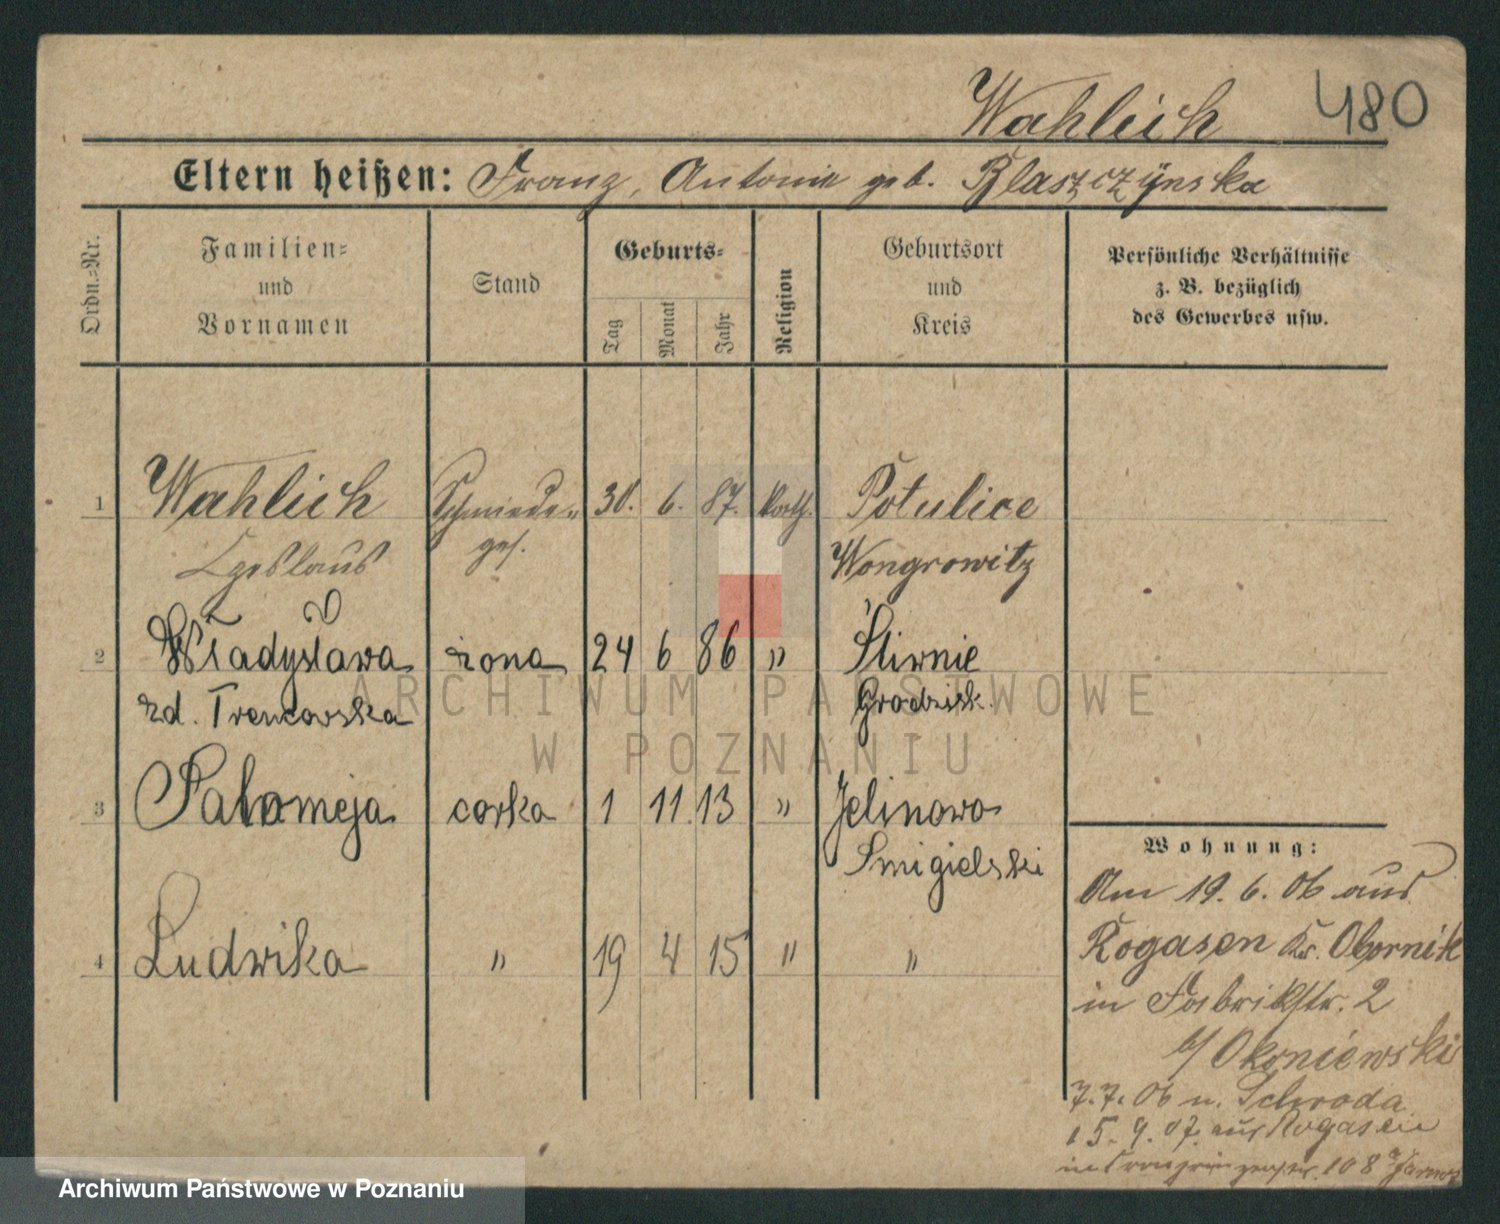 Wahlich 480
Eltern heißen: Franz, Antonie geb. Blaszczyńska
Ordn.=Nr.
Familien=
und
Vornamen
Stand
Geburts=
Tag
Monat
Jahr
Religion
Geburtsort
und
Kreis
Persönliche Verhältnisse
z. B. bezüglich
des Gewerbes usw.
1 Wahlich Schmiede= 30. 6. 87. kath. Potulice
Czeslaus ges. Wongrowitz
2 Władysława żona 24 6 86 " Śliwnie
zd. Grodzisk.
3 Salomeja corka 1 11. 13 " Jelinowo
Smigielski
4 Ludwika " 19 4 15 " "
Wohnung:
Am 19. 6. 06 aus
Rogasen Kr. Obornik
in Fabrikstr. 2
b/ Okoniewski
7. 7. 06 n. Schroda
15. 9. 07. aus Rogasen
in Kronprinzenstr. 108
ARCHIWUM PAŃSTWOWE
W POZNANIU
Archiwum Państwowe w Poznaniu